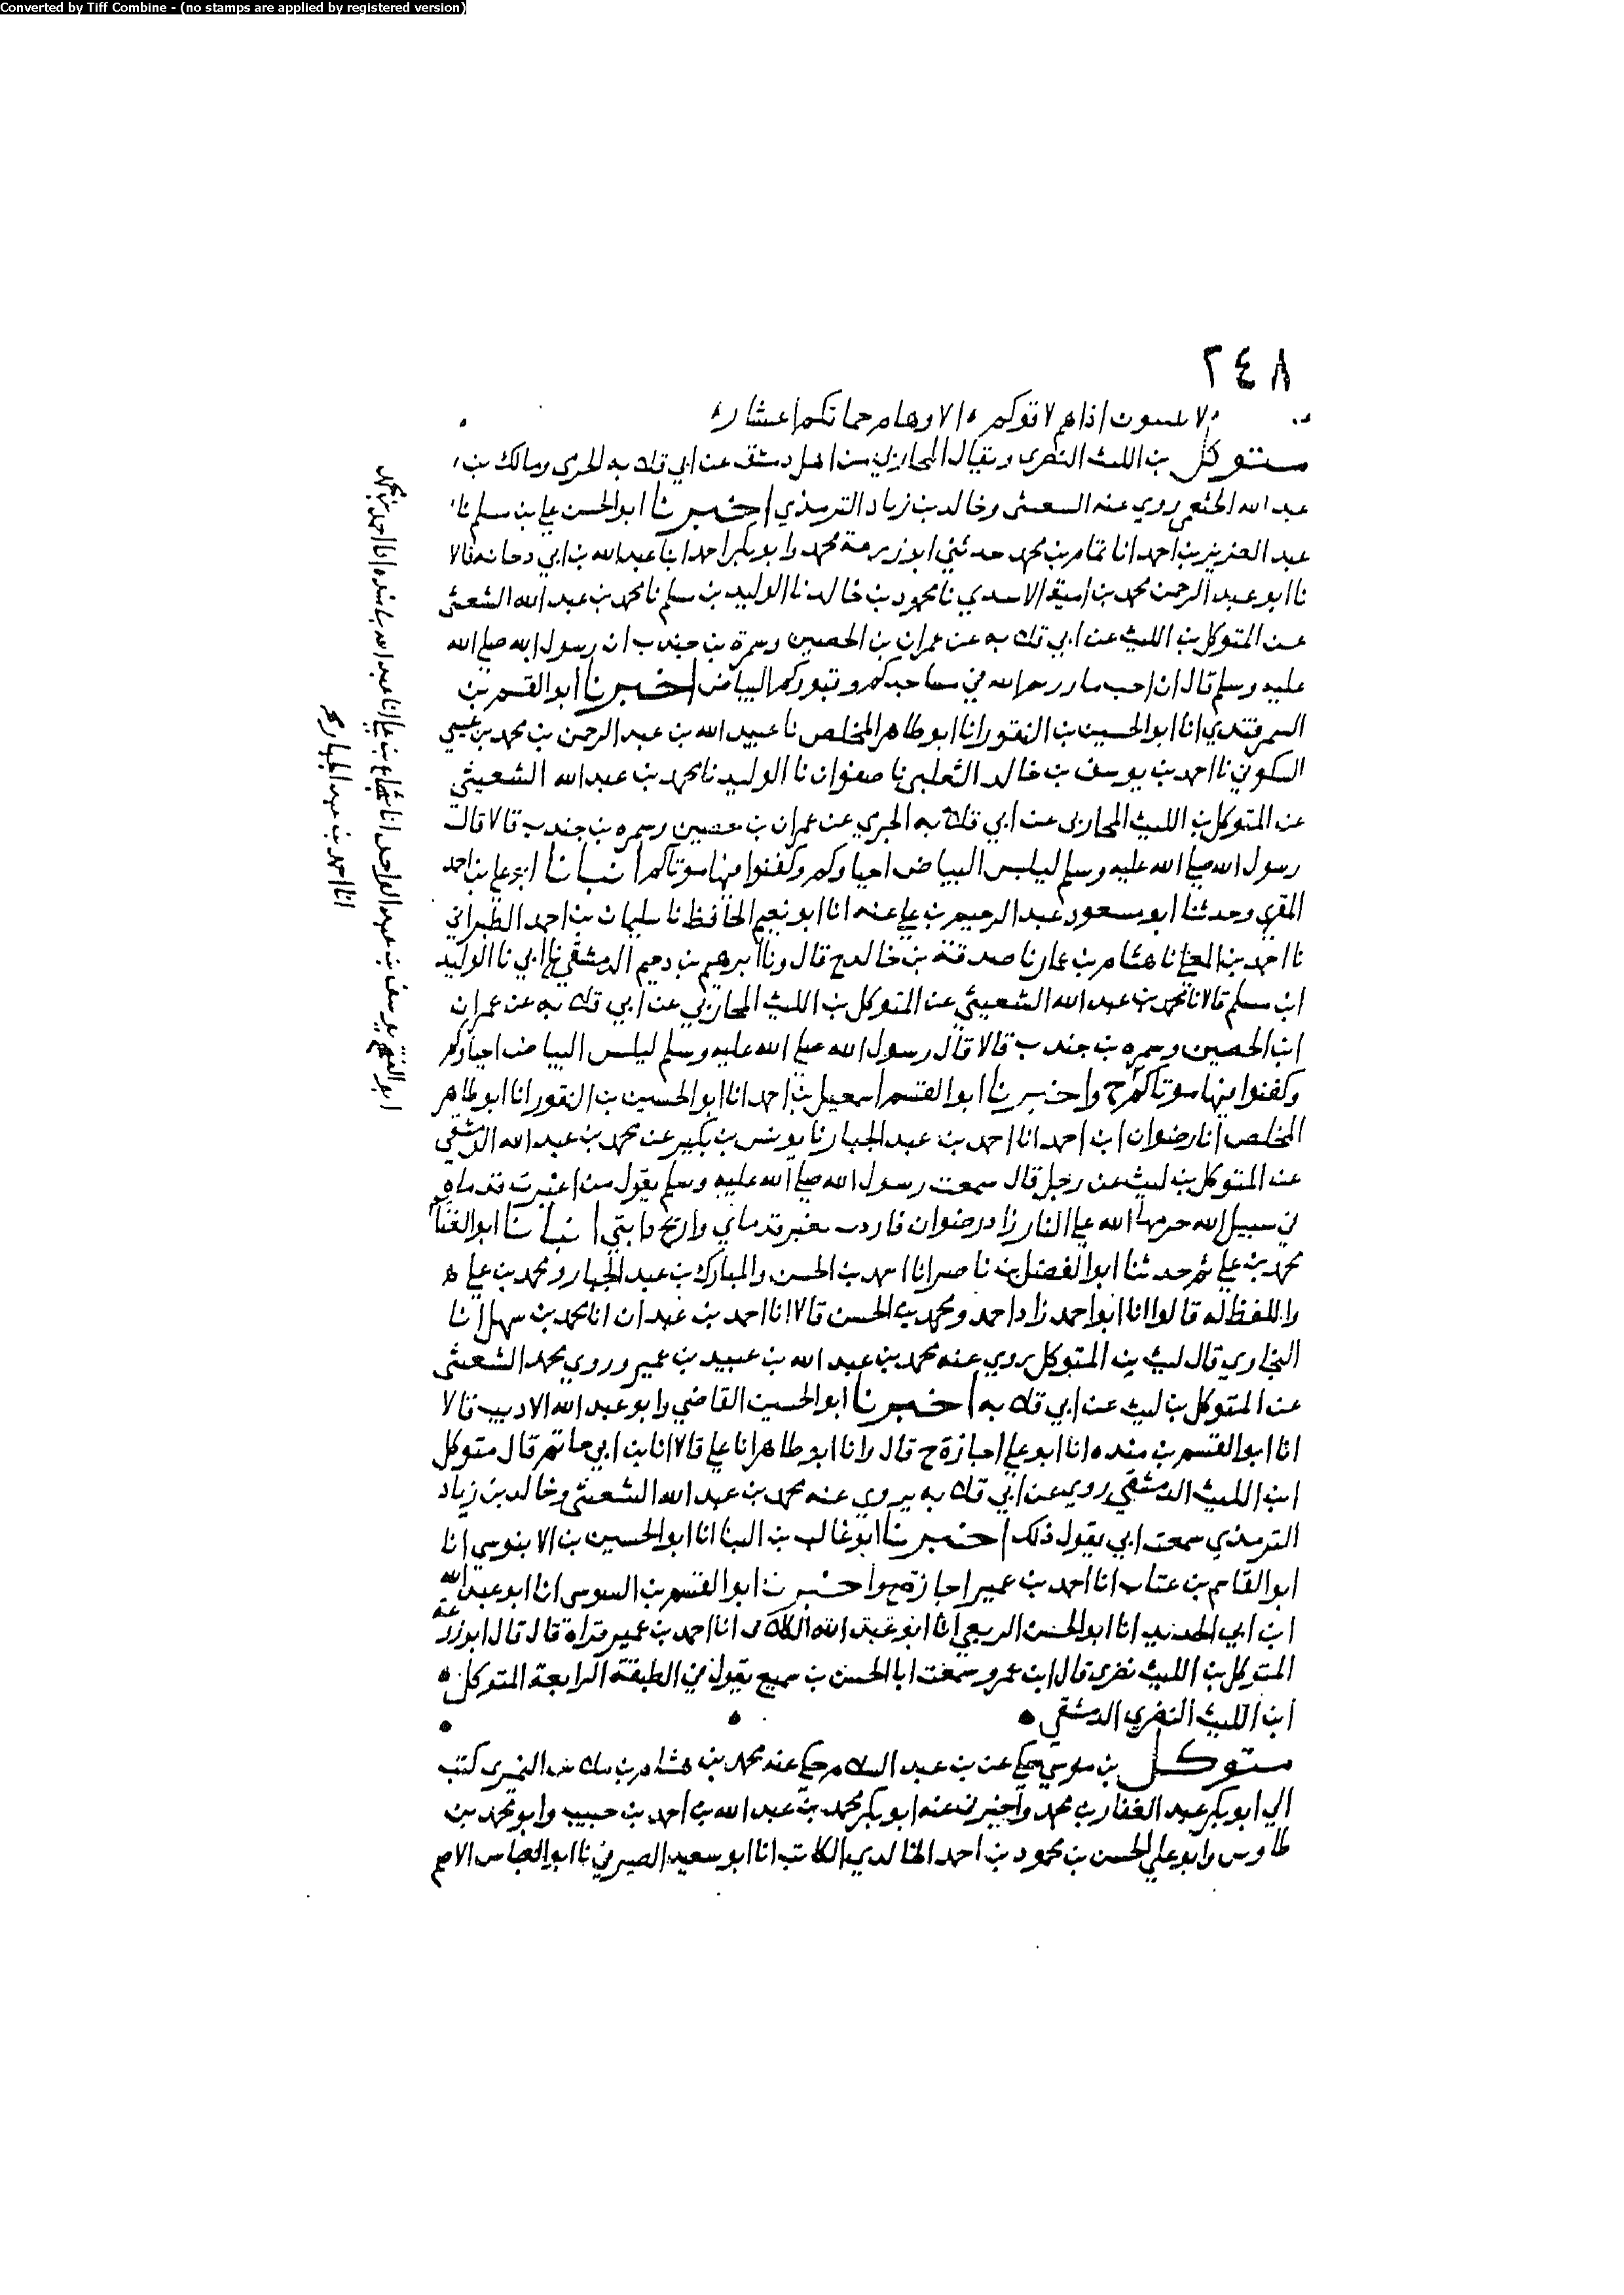 Converted by Tiff Combine - (no stamps are applied by registered version)
٢٤٨
اذا هم لا قوكم والا وهام حماتكم اعشار
متوكل بن الليث النصري ويقال المحاربي من اهل دمشق عن ابي قلابه الجرمي ومالك بن
عبد الله الخثعمي روي عنه السعىى وخالد بن زياد الترمذي اخبرنا ابو الحسن علي بن مسلم نا
عبد العزيز بن احمد انا تمام بن محمد حدثني ابو زرعة محمد وابو بكر احمد ابنا عبد الله بن ابي دجانه قالا
نا ابو عبد الرحمن محمد بن امية الاسدي نا محمود بن خالد نا الوليد بن مسلم نا محمد بن عبد الله الشعىى
عن المتوكل بن الليث عن ابي قلابه عن عمران بن الحصين وسمرة بن جندب ان رسول الله صلي الله
عليه وسلم قال ان احب ما زرتم الله في مساجدكم وقبوركم البياض اخبرنا ابو القسم بن
السمرقندي انا ابو الحسين بن النقور انا ابو طاهر المخلص نا عبيد الله بن عبد الرحمن بن محمد بن عيسي
السكوني نا احمد بن يوسف بن خالد الثعلبي نا صفوان نا الوليد نا محمد بن عبد الله الشعيثي
عن المتوكل بن الليث المحاربي عن ابي قلابه الجرمي عن عمران بن حصين وسمره بن جندب قالا قال
رسول الله صلي الله عليه وسلم ليلبس البياض احياوكم وكفنوا فيها موتاكم انبانا ابو علي بن احمد
المقري وحدثنا ابو مسعود عبد الرحيم بن علي عنه انا ابو نعيم الحافظ نا سليمان بن احمد الطبراني
نا احمد بن المعلي نا هشام بن عمار نا صدقة بن خالد ح قال ونا ابرهيم بن دحيم الدمشقي نا ابي نا الوليد
ابن مسلم قالا نا محمد بن عبد الله الشعيثي عن المتوكل بن الليث المحاربي عن ابي قلابه عن عمران
ابن الحصين وسمره بن جندب قالا قال رسول الله صلي الله عليه وسلم ليلبس البياض احياوكم
وكفنوا فيها موتاكم ح واخبرنا ابو القسم اسمعيل بن احمد انا ابو الحسين بن النقور انا ابو طاهر
المخلص انا رضوان ابن احمد انا احمد بن عبد الجبار نا يونس بن بكير عن محمد بن عبد الله الدمشقي
عن المتوكل بن ليث عن رجل قال سمعت رسول الله صلي الله عليه وسلم يقول من اغبرت قدماه
في سبيل الله حرمها الله علي النار زاد رضوان فاردت يغبر قدماي واريح دابتي انبانا ابو الغنائم
محمد بن علي ثم حدثنا ابو الفضل بن ناصر انا احمد بن الحسن والمبارك بن عبد الجبار ومحمد بن علي
واللفظ له قالوا انا ابو احمد زاد احمد ومحمد بن الحسن قالا انا احمد بن عبدان انا محمد بن سهل انا
البخاري قال ليث بن المتوكل روي عنه محمد بن عبد الله بن عبيد بن عمير وروي محمد الشعىى
عن المتوكل بن ليث عن ابي قلابه اخبرنا ابو الحسين القاضي وابو عبد الله الاديب قالا
انا ابو القسم بن منده انا ابو علي اجازة ح قال وانا ابو طاهر انا علي قالا انا ابن ابي حاتم قال متوكل
ابن الليث الدمشقي روي عن ابي قلابه يروي عنه محمد بن عبد الله الشعىى وخالد بن زياد
الترمذي سمعت ابي يقول ذلك اخبرنا ابو غالب بن البنا انا ابو الحسين بن الابنوسي انا
ابو القاسم بن عتاب انا احمد بن عمير اجازة ح واخبرنا ابو القسم بن السوسي انا ابو عبد الله
ابن ابي الحديد انا ابو الحسن الربعي انا ابو عبد الله الكلابي انا احمد بن عمير قراة قال قال ابو زرعة
المتوكل بن الليث نصري قال ابن عمر وسمعت ابا الحسن بن سميع يقول في الطبقة الرابعة المتوكل
ابن الليث النصري الدمشقي
متوكل بن موسي حكي عن بن عبد السلام حكي عنه محمد بن هشام بن ملاس النميري كتب
الي ابو بكر عبد الغفار بن محمد واخبرني عنه ابو بكر محمد بن عبد الله بن احمد بن حبيب وابو محمد بن
طاوس وابو علي الحسن بن محمود بن احمد الخالدي الكاتب انا ابو سعيد الصيرفي نا ابو العباس الاصم
ابو الفتح يوسف بن عبد الواحد انا شجاع بن علي انا عبد الله بن منده انا احمد بن محمد
انا احمد بن عبد الجبار